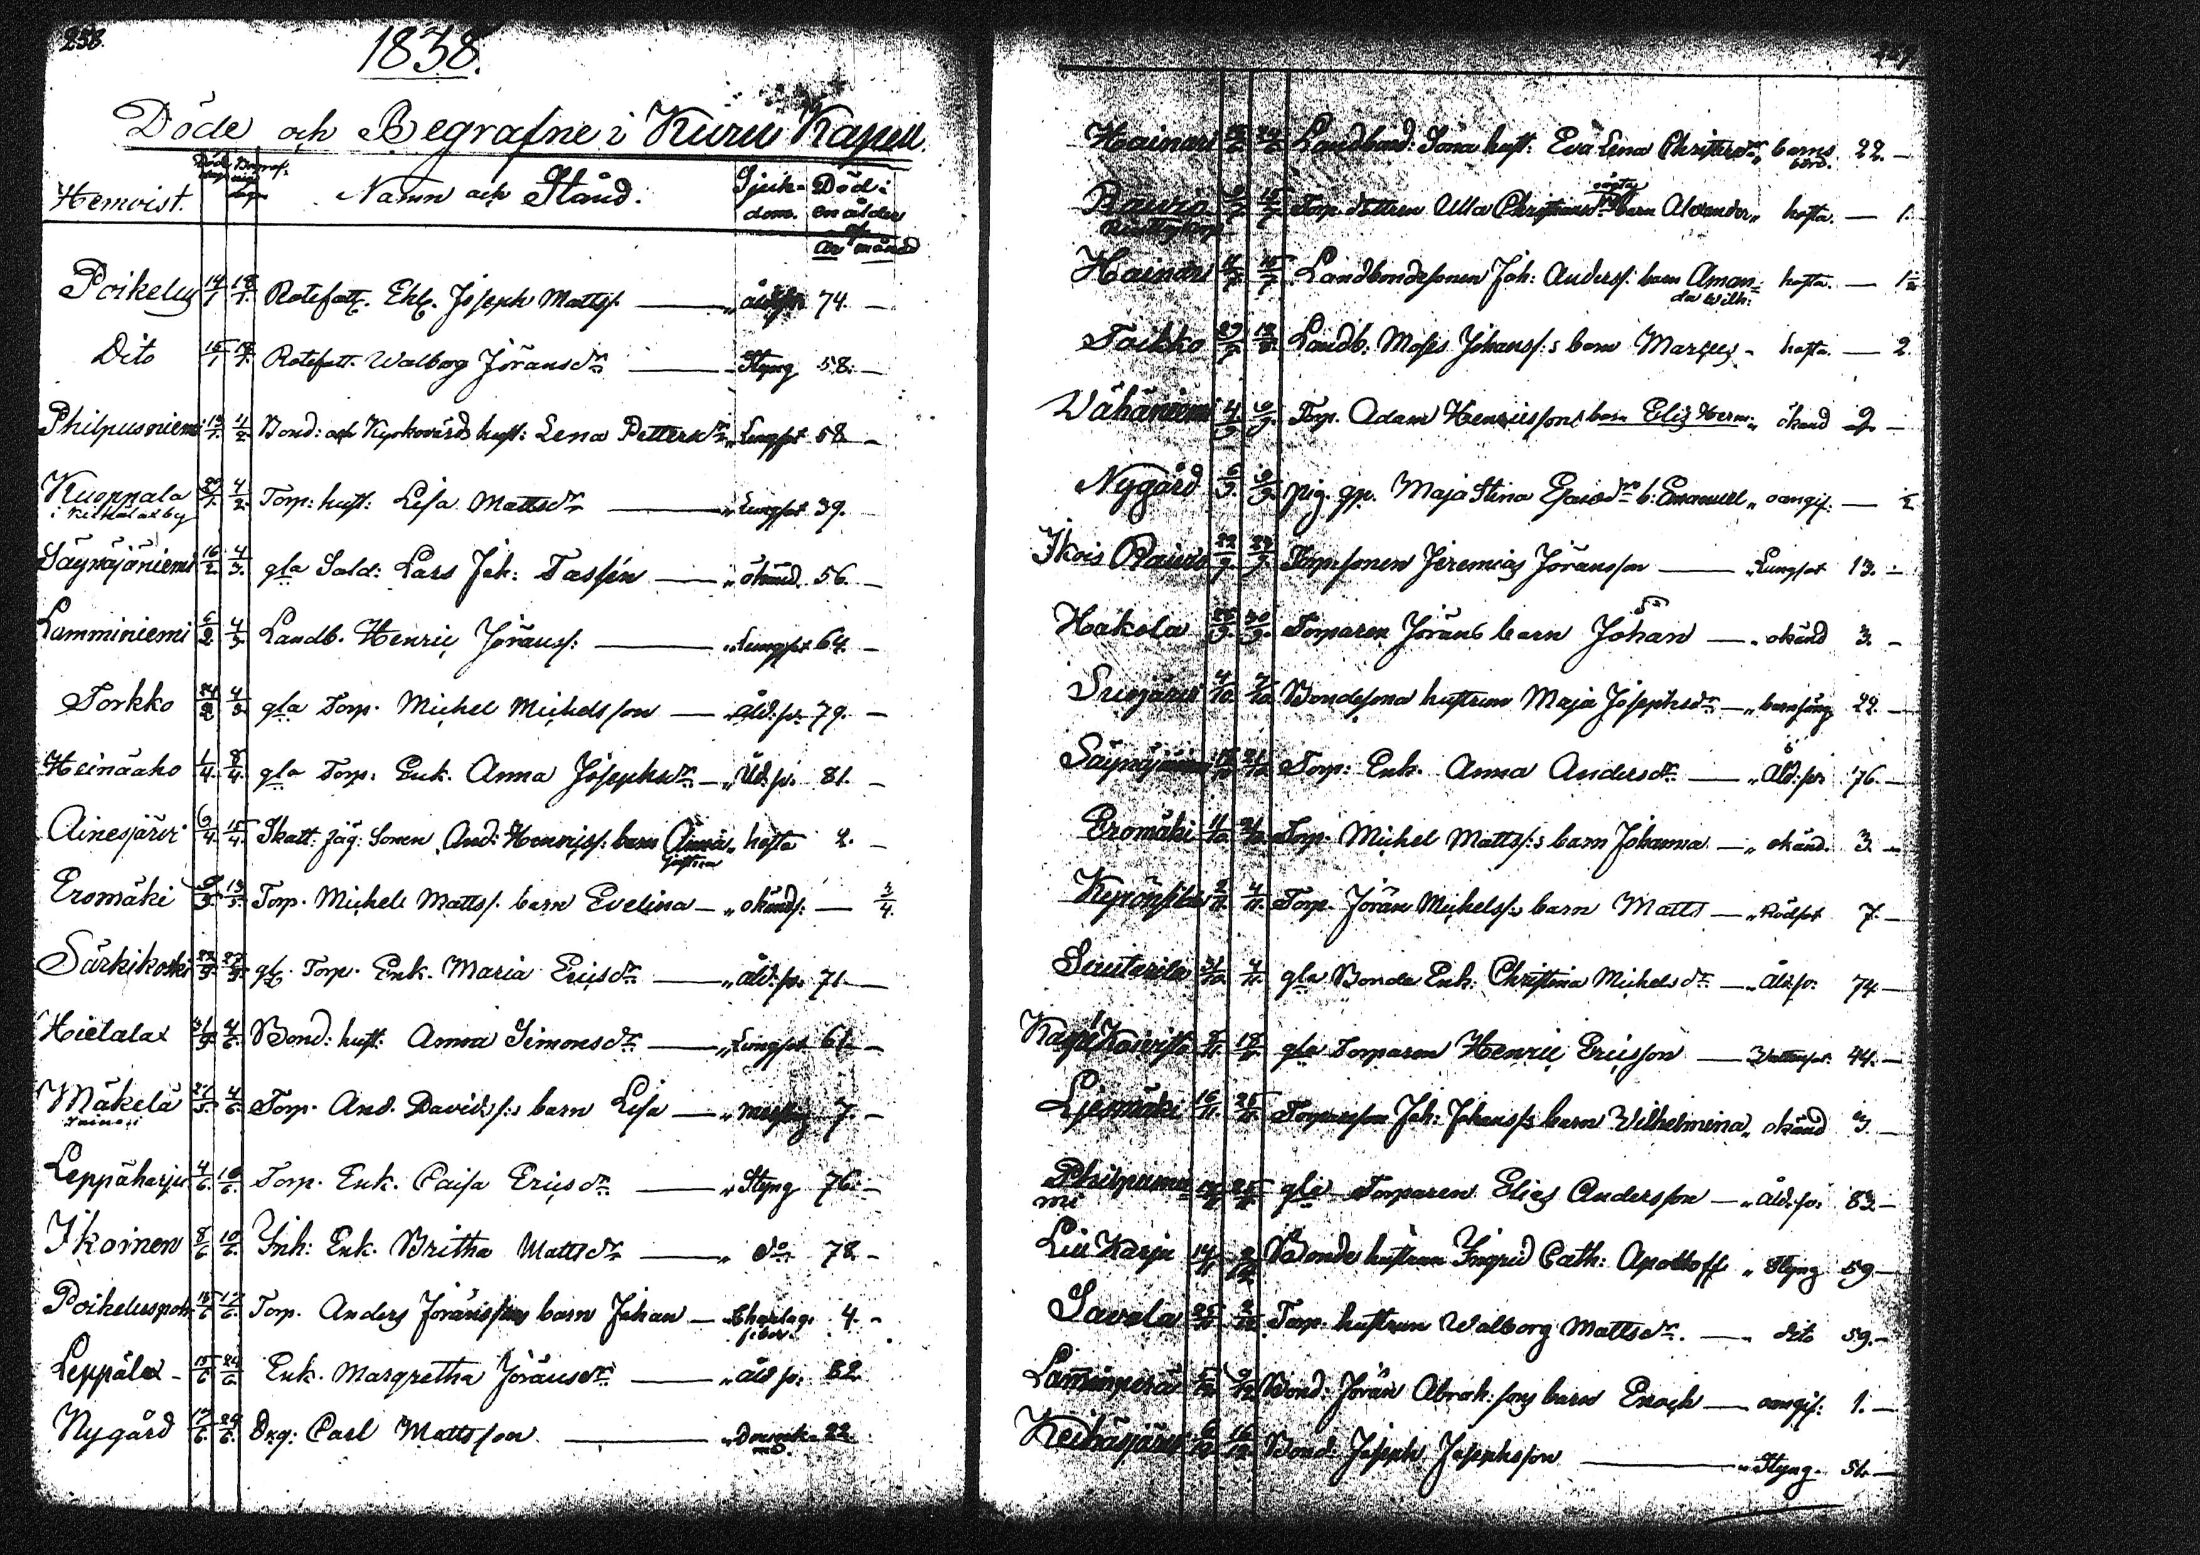 258.
1838.
Döde och Begrafne i Kuru Kapell.
Hemvist. Död dag Begrafnings dagen Namn och Stånd. Sjuk-dom. Död: en ålder af
år månad
Poikelus 14/1 18/1. Rotefatt. Enk. Joseph Mattss. — 74. —
Dito 15/1 18/1. Rotefatt. Walborg Jöransdr — Styng 58. —
Philpusniemi 4/2. Bond: och Kyrkovärds hust: Lena Pettersdr „ Lungsot 58 —
Kuoppala 4/2. Torp: hust: Lisa Mattsdr — „ Lungsot 39. —
Säynäjäniemi 16/2. 4/3. gla Sold: Lars Joh: Tassén — „ okänd. 56. —
Lamminiemi 6/2 4/3 Landb. Henric Jöranss: — „ Lungsot 64. —
Torkko 24/2 4/3 gla Torp. Michel Michelsson — „ åld:sv. 79. —
Heinäaho 1/4. 8/4. gla Torp. Enk. Anna Josephsdr — „ Åld.sv. 81. —
Ainesjärvi 6/4. 15/4. Skatt: Jäg: Sonen And: Henricss: barn „ hosta 2. —
Eromäki 13/5. Torp. Michels Mattss. barn Evelina — „ okänds: — 3/4.
Särkikoski 22/5. 27/5. gl. Torp. Enk. Maria Ericsdr — „ åld:sv. 71. —
Hietalax 31/5 4/6. Bond: hust: Anna Simonsdr — „ Lungsot 61. —
Mäkelä 31/5. 4/6. Torp. And. Davidss:s barn Lisa — „ 7. —
Leppäharju 4/6. 10/6. Torp. Enk. Caisa Ericsdr — „ Styng 76. —
Ikoinen 8/6 10/6. Inh: Enk. Britha Mattsdr — „ do 78. —
15/6 17/6. Torp. Anders Jöranssons barn Johan — „ Charlags feber. 4. —
Leppälax — 15/6 24/6. Enk. Margretha Jöransdr — „ åld sv. 82.
Nygård 17/6. 24/6. Drg: Carl Mattsson — „ Drunknad. 22.
Hainari 24/6 Landbond: Sona hust: Eva Lena Christersdr „ barns börd. 22. —
Pauro 15/7 Torp. dottren Ulla Christiansdr oägta barn Alexander „ hosta. — 1.
Hainari 15/7 Landbondesonen Joh: Anderss: barn Aman-da Wilh: hosta. —
Toikko 29/7 Landb: Moses Johanss:s barn Marcus — hosta. — 2.
Wähäniemi 4/9 9/9. Torp. Adam Henricssons barn Eliz Herm: „ okänd 2 —
Nygård 6/9. 9/9. pig. qp. Maja Stina b: Emanuel „ oangif: — 1/2
Ikois Pauro 22/9. Torpsonen Jeremias Jöransson — „ Lungsot 13. —
Hakola 30/9. Torparen Jörans barn Johan — „ okänd 3. —
4/10 7/10 Bondesona hustrun Maja Josephsdr — „ barnsäng 22. —
21/10 Torp: Enk. Anna Andersdr — „ Åld:sv 76. —
Eromäki 11/10 21/10 Torp. Michel Mattss:s barn Johanna — „ okänd. 3. —
4/11. Torp. Jöran Michelss:s barn Matts — „ Rödsot 7. —
Sauterila 31/10. 4/11. gla Bonde Enk: Christina Michelsdr — „ Åld.sv. 74 —
18/11. gla Torparen Henric Ericsson — Wattusot. 44. —
16/11. 25/11. Torparesson Joh: Johanss:s barn Wilhelmina „ okänd 3. —
Philpusniemi 25/11 gle Torparen Elias Andersson — „ Åld.sv: 83 —
Lill Karju 2/12 Bonde hustrun Ingrid Cath: „ Styng 59 —
Savela 2/12. Torp. hustrun Walborg Mattsdr. — „ dito 59. —
Lamminperä 9/12 Bond: Jöran Abrah:sons barn Enoch — oangif: 1. —
Keihäsjärvi 16/12 Bond: Joseph Josephsson — „ Styng. 51. —